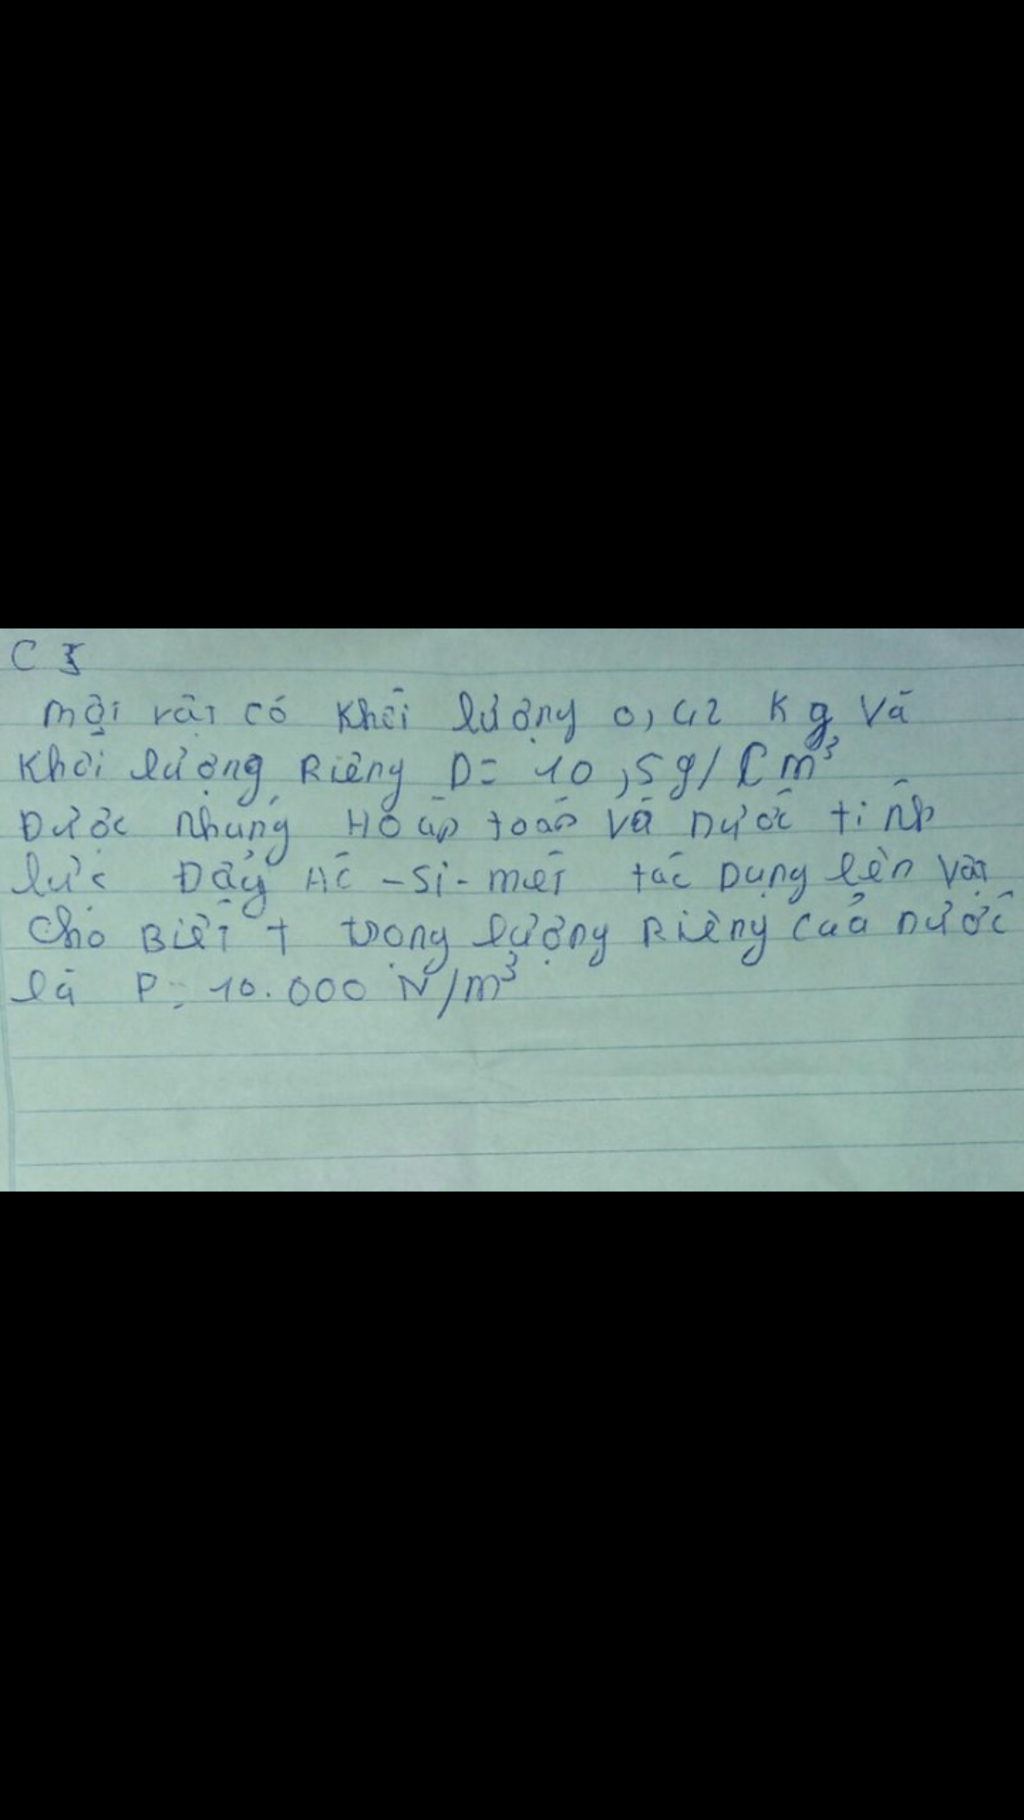 C 5
Một vật có khối lượng 0,42 kg và
khối lượng Riêng D= 10,5g/cm³
Được nhúng Hoàn toàn và nước tính
lực Đẩy Ác-si-mét tác Dụng lên vật
cho Biết t trọng lượng Riêng của nước
là P= 10.000 N/m³